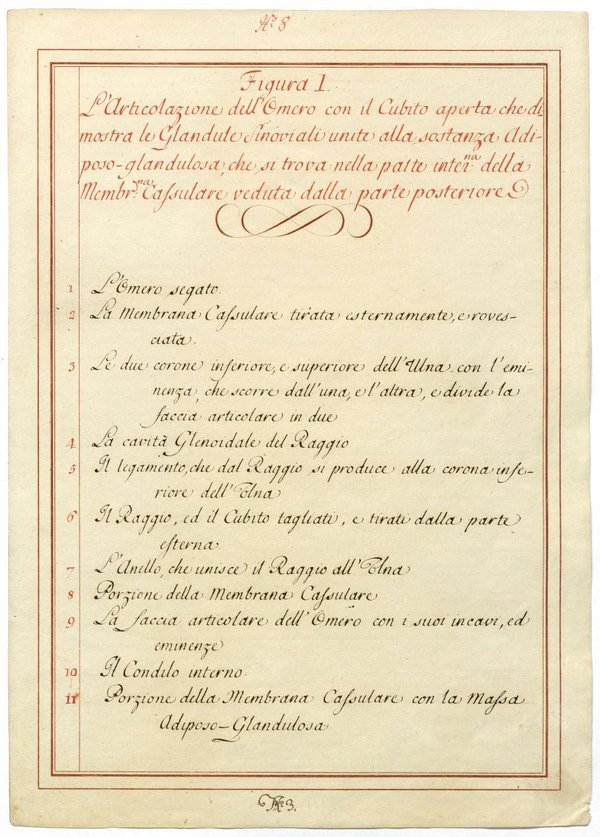 N.º 8
Figura I.
L'Articolazione dell'Omero con il Cubito aperta che di
mostra le Glandule Sinoviali unite alla sostanza Adi-
poso-glandulosa, che si trova nella parte inter.na della
Membr.na Cassulare veduta dalla parte posteriore
1 L'Omero segato.
2 La Membrana Cassulare tirata esternamente, e roves-
ciata.
3 Le due corone inferiore, e superiore dell'Ulna con l'emi-
nenza, che scorre dall'una, e l'altra, e divide la
faccia articolare in due
4 La cavità Glenoidale del Raggio
5 Il legamento, che dal Raggio si produce alla corona infe-
riore dell'Ulna
6 Il Raggio, ed il Cubito tagliati, e tirati dalla parte
esterna.
7 L'Anello, che unisce il Raggio all'Ulna
8 Porzione della Membrana Cassulare
9 La faccia articolare dell'Omero con i suoi incavi, ed
eminenze
10 Il Condilo interno.
11 Porzione della Membrana Cassulare con la Massa
Adiposo-Glandulosa
N.º 3.